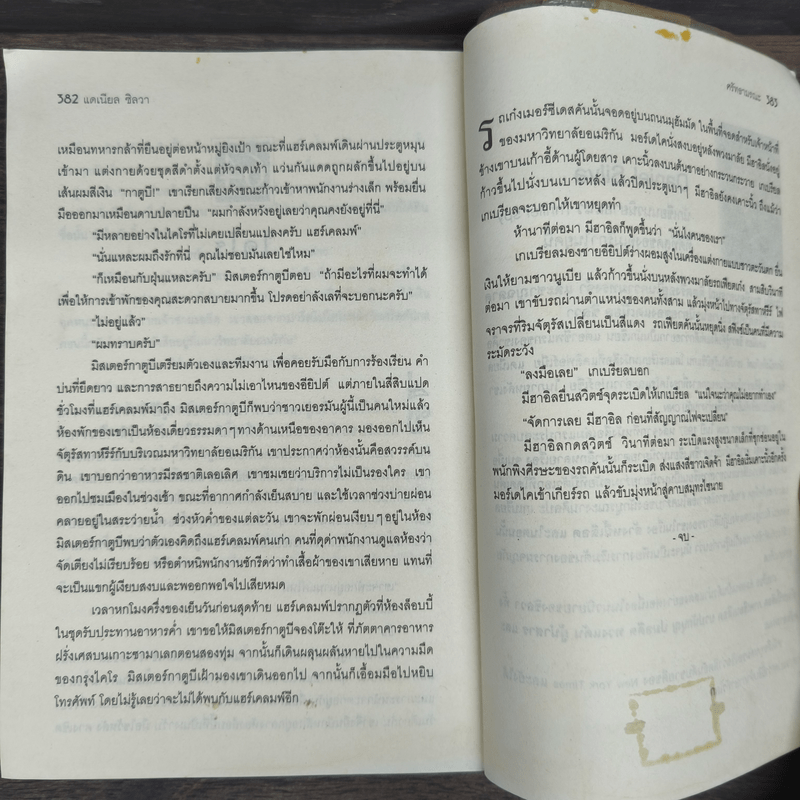 382 แดเนียล ซิลวา
เหมือนทหารกล้าที่ยืนอยู่ต่อหน้าหมู่ยิงเป้า ขณะที่แฮร์เคลมพ์เดินผ่านประตูหมุน
เข้ามา แต่งกายด้วยชุดสีดำตั้งแต่หัวจดเท้า แว่นกันแดดถูกผลักขึ้นไปอยู่บน
เส้นผมสีเงิน “กาตูบี!” เขาเรียกเสียงดังขณะก้าวเข้าหาพนักงานร่างเล็ก พร้อมยื่น
มือออกมาเหมือนดาบปลายปืน “ผมกำลังหวังอยู่เลยว่าคุณคงยังอยู่ที่นี่”
“มีหลายอย่างในไคโรที่ไม่เคยเปลี่ยนแปลงครับ แฮร์เคลมพ์”
“นั่นแหละผมถึงรักที่นี่ คุณไม่ชอบมันเลยใช่ไหม”
“ก็เหมือนกับฝุ่นแหละครับ” มิสเตอร์กาตูบีตอบ “ถ้ามีอะไรที่ผมจะทำได้
เพื่อให้การเข้าพักของคุณสะดวกสบายมากขึ้น โปรดอย่าลังเลที่จะบอกนะครับ”
“ไม่อยู่แล้ว”
“ผมทราบครับ”
มิสเตอร์กาตูบีเตรียมตัวเองและทีมงาน เพื่อคอยรับมือกับการร้องเรียน คำ
บ่นที่ยืดยาว และการสาธยายถึงความไม่เอาไหนของอียิปต์ แต่ภายในสี่สิบแปด
ชั่วโมงที่แฮร์เคลมพ์มาถึง มิสเตอร์กาตูบีก็พบว่าชาวเยอรมันผู้นี้เป็นคนใหม่แล้ว
ห้องพักของเขาเป็นห้องเดี่ยวธรรมดาๆ ทางด้านเหนือของอาคาร มองออกไปเห็น
จัตุรัสทาห์รีร์กับบริเวณมหาวิทยาลัยอเมริกัน เขาประกาศว่าห้องนั้นคือสวรรค์บน
ดิน เขาบอกว่าอาหารมีรสชาติเลอเลิศ เขาชมเชยว่าบริการไม่เป็นรองใคร เขา
ออกไปชมเมืองในช่วงเช้า ขณะที่อากาศกำลังเย็นสบาย และใช้เวลาช่วงบ่ายผ่อน
คลายอยู่ในสระว่ายน้ำ ช่วงหัวค่ำของแต่ละวัน เขาจะพักผ่อนเงียบๆ อยู่ในห้อง
มิสเตอร์กาตูบีพบว่าตัวเองคิดถึงแฮร์เคลมพ์คนเก่า คนที่ดุด่าพนักงานดูแลห้องว่า
จัดเตียงไม่เรียบร้อย หรือตำหนิพนักงานซักรีดว่าทำเสื้อผ้าของเขาเสียหาย แทนที่
จะเป็นแขกผู้เงียบสงบและพออกพอใจไปเสียหมด
เวลาหกโมงครึ่งของเย็นวันก่อนสุดท้าย แฮร์เคลมพ์ปรากฏตัวที่ห้องล็อบบี้
ในชุดรับประทานอาหารค่ำ เขาขอให้มิสเตอร์กาตูบีจองโต๊ะให้ ที่ภัตตาคารอาหาร
ฝรั่งเศสบนเกาะซามาเลกตอนสองทุ่ม จากนั้นก็เดินผลุนผลันหายไปในความมืด
ของกรุงไคโร มิสเตอร์กาตูบีเฝ้ามองเขาเดินออกไป จากนั้นก็เอื้อมมือไปหยิบ
โทรศัพท์ โดยไม่รู้เลยว่าจะไม่ได้พบกับแฮร์เคลมพ์อีก
383
รถเก๋งเมอร์ซีเดสคันนั้นจอดอยู่บนถนนมุฮัมมัด ในพื้นที่จอดสำหรับเจ้าหน้าที่
ของมหาวิทยาลัยอเมริกัน มอร์เดไคนั่งสงบอยู่หลังพวงมาลัย มีฮาอิลนั่งอยู่
ข้างเขาบนเก้าอี้ด้านผู้โดยสาร เคาะนิ้วลงบนต้นขาอย่างกระวนกระวาย เกเบรียล
ก้าวขึ้นไปนั่งบนเบาะหลัง แล้วปิดประตูเบาๆ มีฮาอิลยังคงเคาะนิ้ว ถึงแม้ว่า
เกเบรียลจะบอกให้เขาหยุดทำ
ห้านาทีต่อมา มีฮาอิลก็พูดขึ้นว่า “นั่นไงคนของเรา”
เกเบรียลมองชายอียิปต์ร่างผอมสูงในเครื่องแต่งกายแบบชาวตะวันตก ยื่น
เงินให้ยามชาวนูเบีย แล้วก้าวขึ้นนั่งบนหลังพวงมาลัยรถเฟียตเก๋ง สามสิบวินาที
ต่อมา เขาขับรถผ่านตำแหน่งของคนทั้งสาม แล้วมุ่งหน้าไปทางจัตุรัสทาห์รีร์ ไฟ
จราจรที่ริมจัตุรัสเปลี่ยนเป็นสีแดง รถเฟียตคันนั้นหยุดนิ่ง สฟิงซ์เป็นคนที่มีความ
ระมัดระวัง
“ลงมือเลย” เกเบรียลบอก
มีฮาอิลยื่นสวิตช์จุดระเบิดให้เกเบรียล “แน่ใจนะว่าคุณไม่อยากทำเอง”
“จัดการเลย มีฮาอิล ก่อนที่สัญญาณไฟจะเปลี่ยน”
มีฮาอิลกดสวิตช์ วินาทีต่อมา ระเบิดแรงสูงขนาดเล็กที่ซุกซ่อนอยู่ใน
พนักพิงศีรษะของรถคันนั้นก็ระเบิด ส่งแสงสีขาวเจิดจ้า มีฮาอิลเริ่มเคาะนิ้วอีกครั้ง
มอร์เดไคเข้าเกียร์รถ แล้วขับมุ่งหน้าสู่คาบสมุทรไซนาย
- จบ -